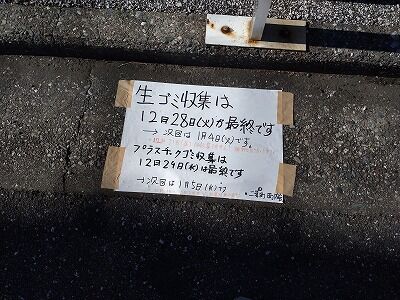 生ゴミ収集は
12日28日(火)が最終です
→ 次回は1月4日(火)です。
プラスチックゴミ収集は
12日29日(水)は最終です
→次回は1月5日(水)です